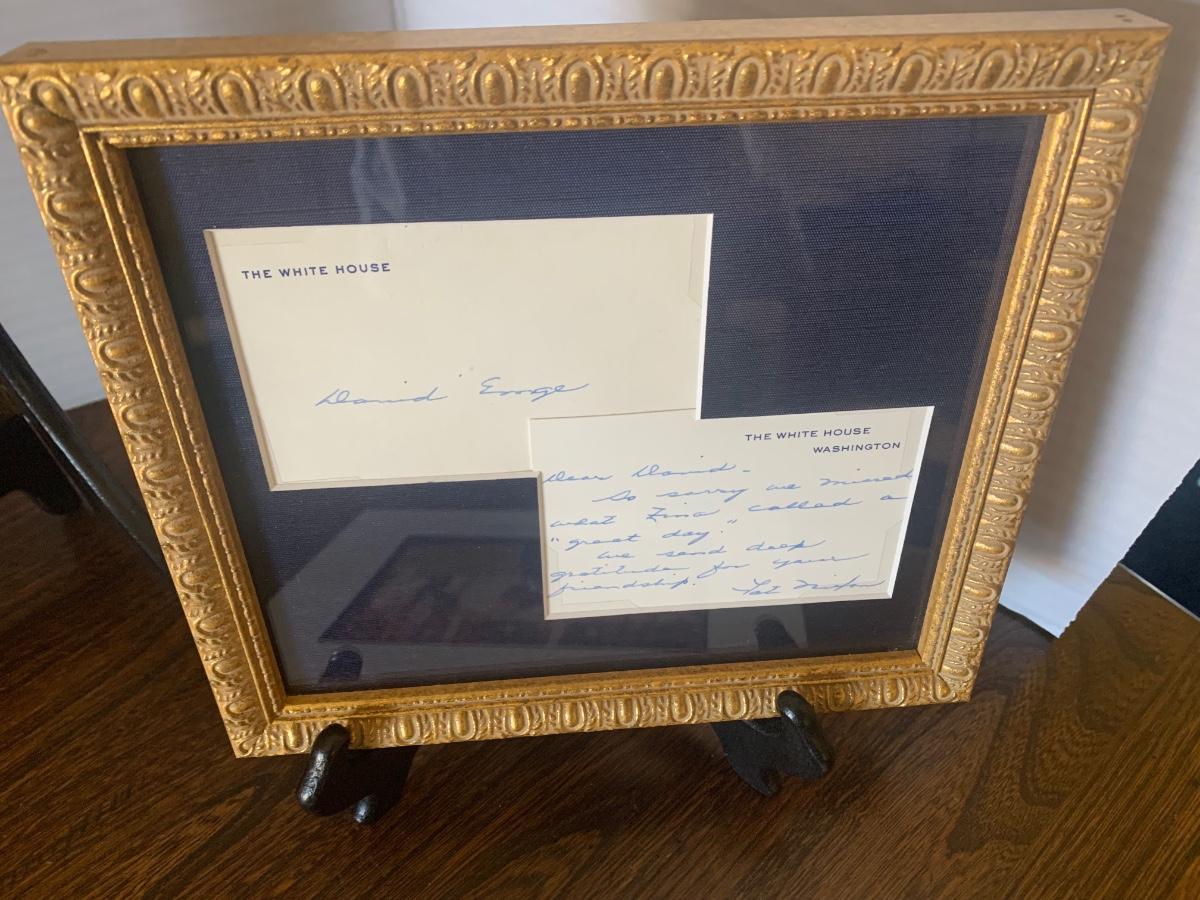 THE WHITE HOUSE
David George
THE WHITE HOUSE
WASHINGTON
Dear David -
So sorry we missed
what Tina called a
"great day."
We send deep
gratitude for your
friendship. Pat Nixon